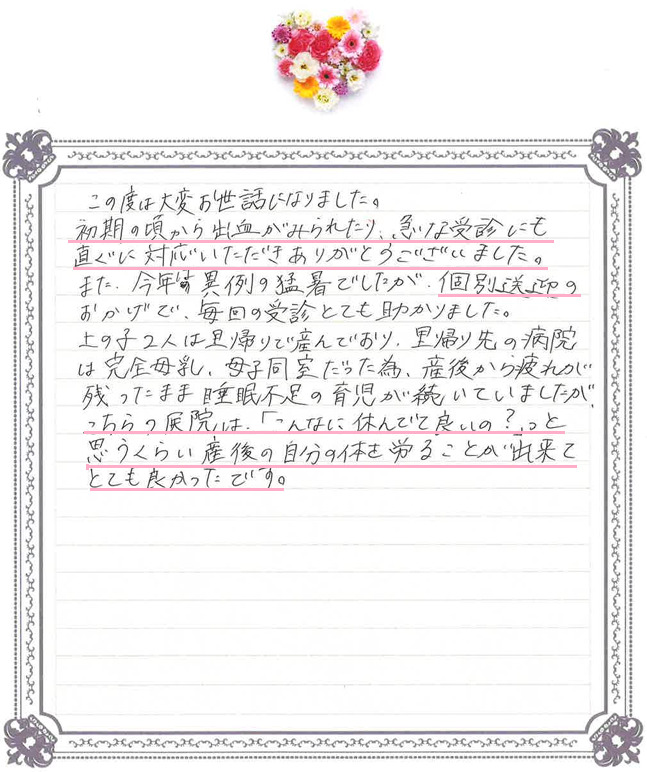 この度は大変お世話になりました。
初期の頃から出血がみられたり、急な受診にも
直ぐに対応いただきありがとうございました。
また、今年は異例の猛暑でしたが、個別送迎の
おかげで、毎回の受診とても助かりました。
上の子2人は里帰りで産んでおり、里帰り先の病院
は完全母乳、母子同室だった為、産後から疲れが
残ったまま睡眠不足の育児が続いていましたが、
こちらの医院は、「こんなに休んでて良いの?」と
思うくらい産後の自分の体を労ることが出来て
とても良かったです。